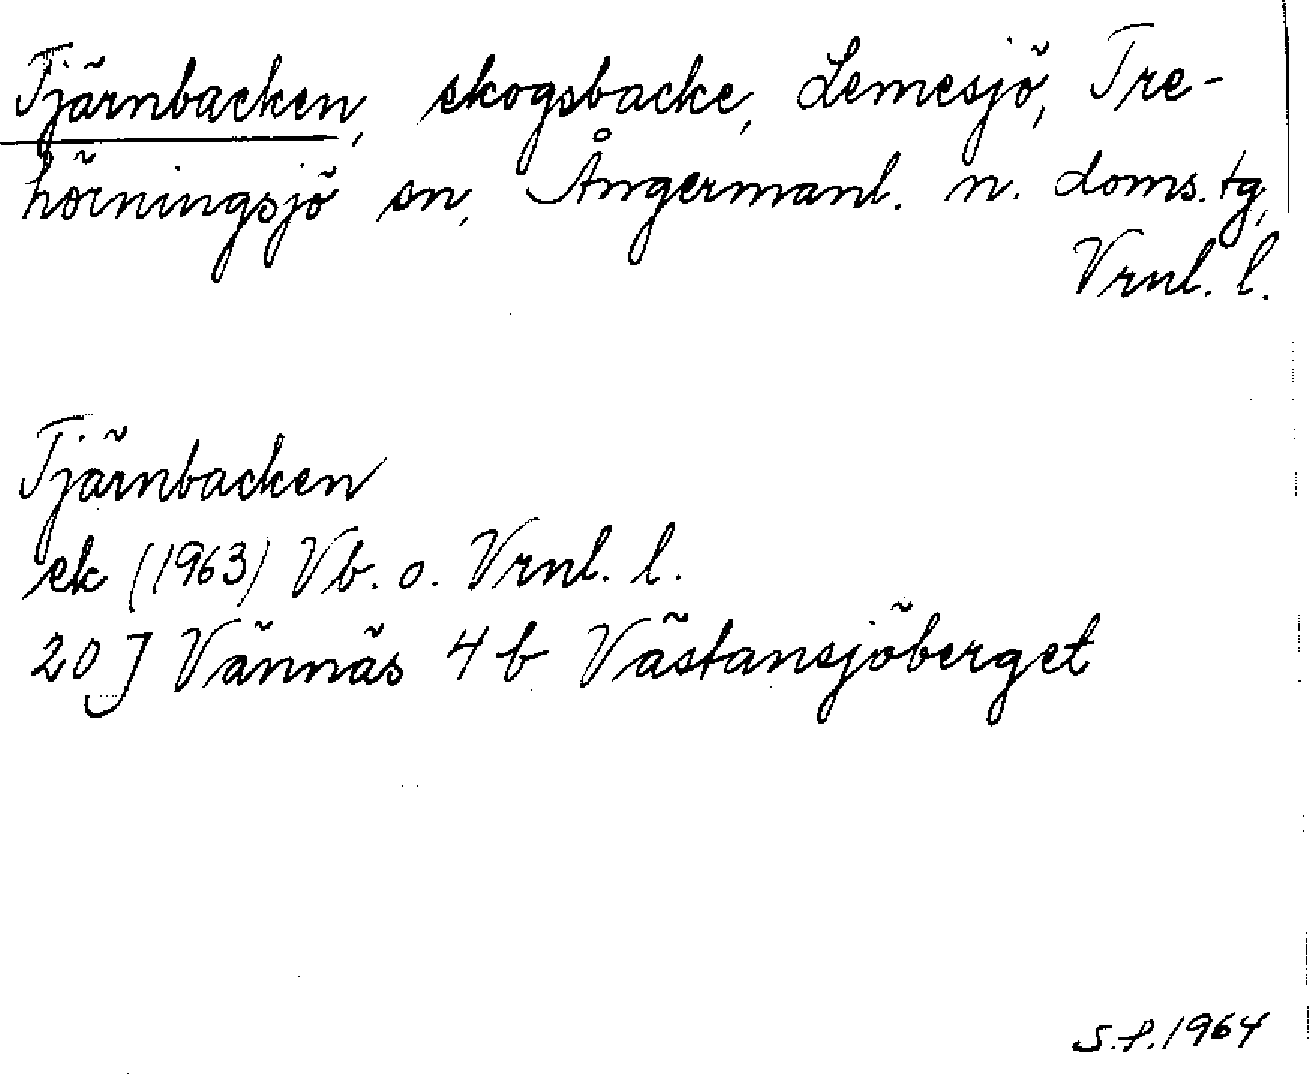 Tjärnbacken, skogsbacke, Lemesjö, Tre-
hörningsjö sn, Ångermanl. n. doms. tg,
Vrnl. l.
Tjärnbacken
ek (1963) Vb. o. Vrnl. l.
20 J Vännäs 4 b Västansjöberget
S.P. 1964